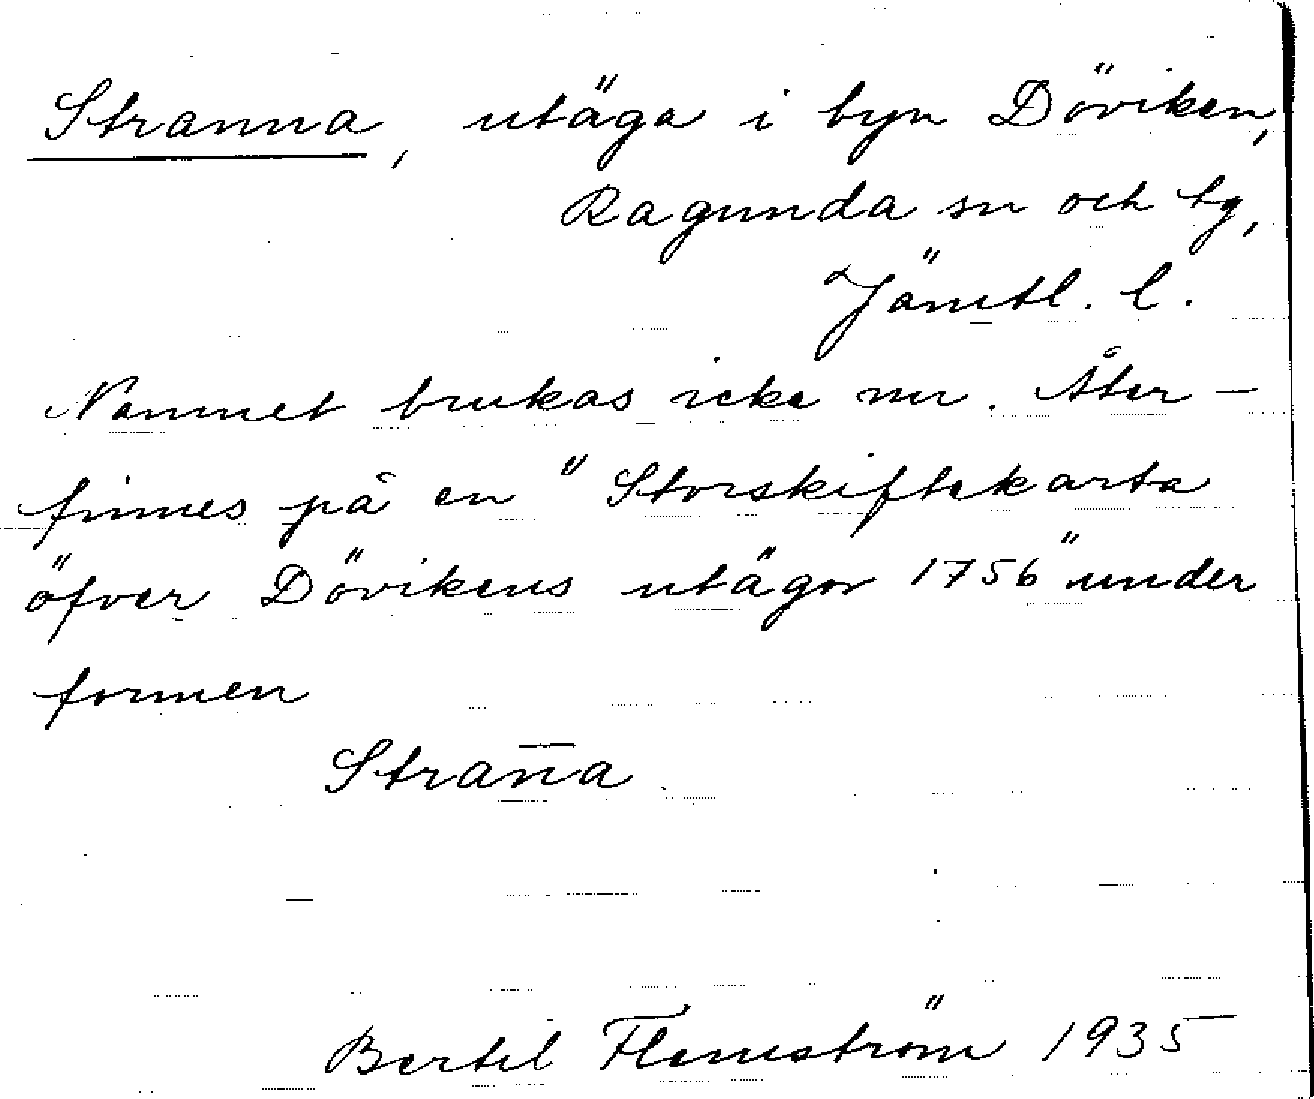 Stranna, utäga i byn Döviken,
Ragunda sn och tg,
Jämtl. l.
Namnet brukas icke nu. Åter-
finnes på en "Storskiftekarta
öfver Dövikens utägor 1756" under
formen
Stran̄a
Bertel Flemström 1935